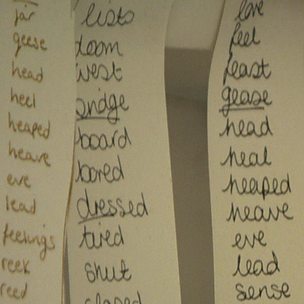 jar
geese
head
heel
heaped
heave
eve
lead
feelings
reek
reed
lists
loom
west
bridge
board
bored
dressed
tired
shut
closed
love
feel
feast
geese
head
heal
heaped
heave
eve
lead
sense